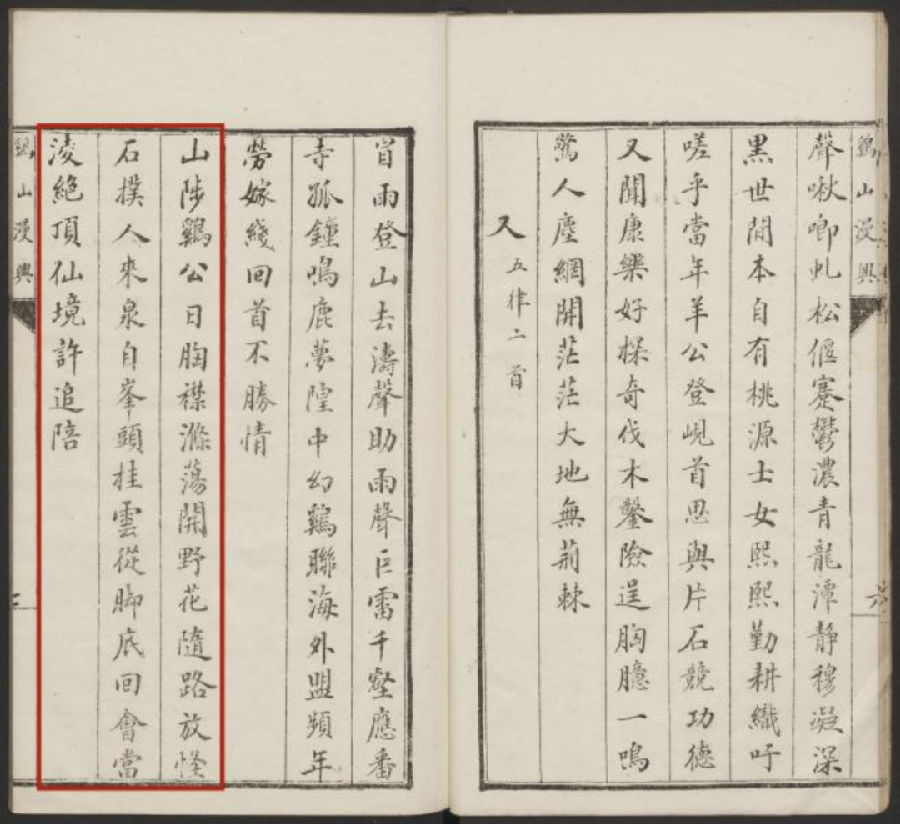 鷄山漫興
聲啾唧虬松偃蹇鬱濃青龍潭静穆凝深
黒世間本自有桃源士女熙熙勤耕織吁
嗟乎當年羊公登峴首思與片石競功德
又聞康樂好探奇伐木鑿險逞胸臆一鳴
驚人塵網開茫茫大地無荊棘
又 五律二首
冒雨登山去濤聲助雨聲巨雷千壑應番
寺孤鐘鳴鹿夢隍中幻鷄聯海外盟頻年
勞嫁綫回首不勝情
山陟鷄公日胸襟滌蕩開野花隨路放怪
石撲人來泉自峯頭挂雲從脚底回會當
淩絶頂仙境許追陪
鷄山漫興